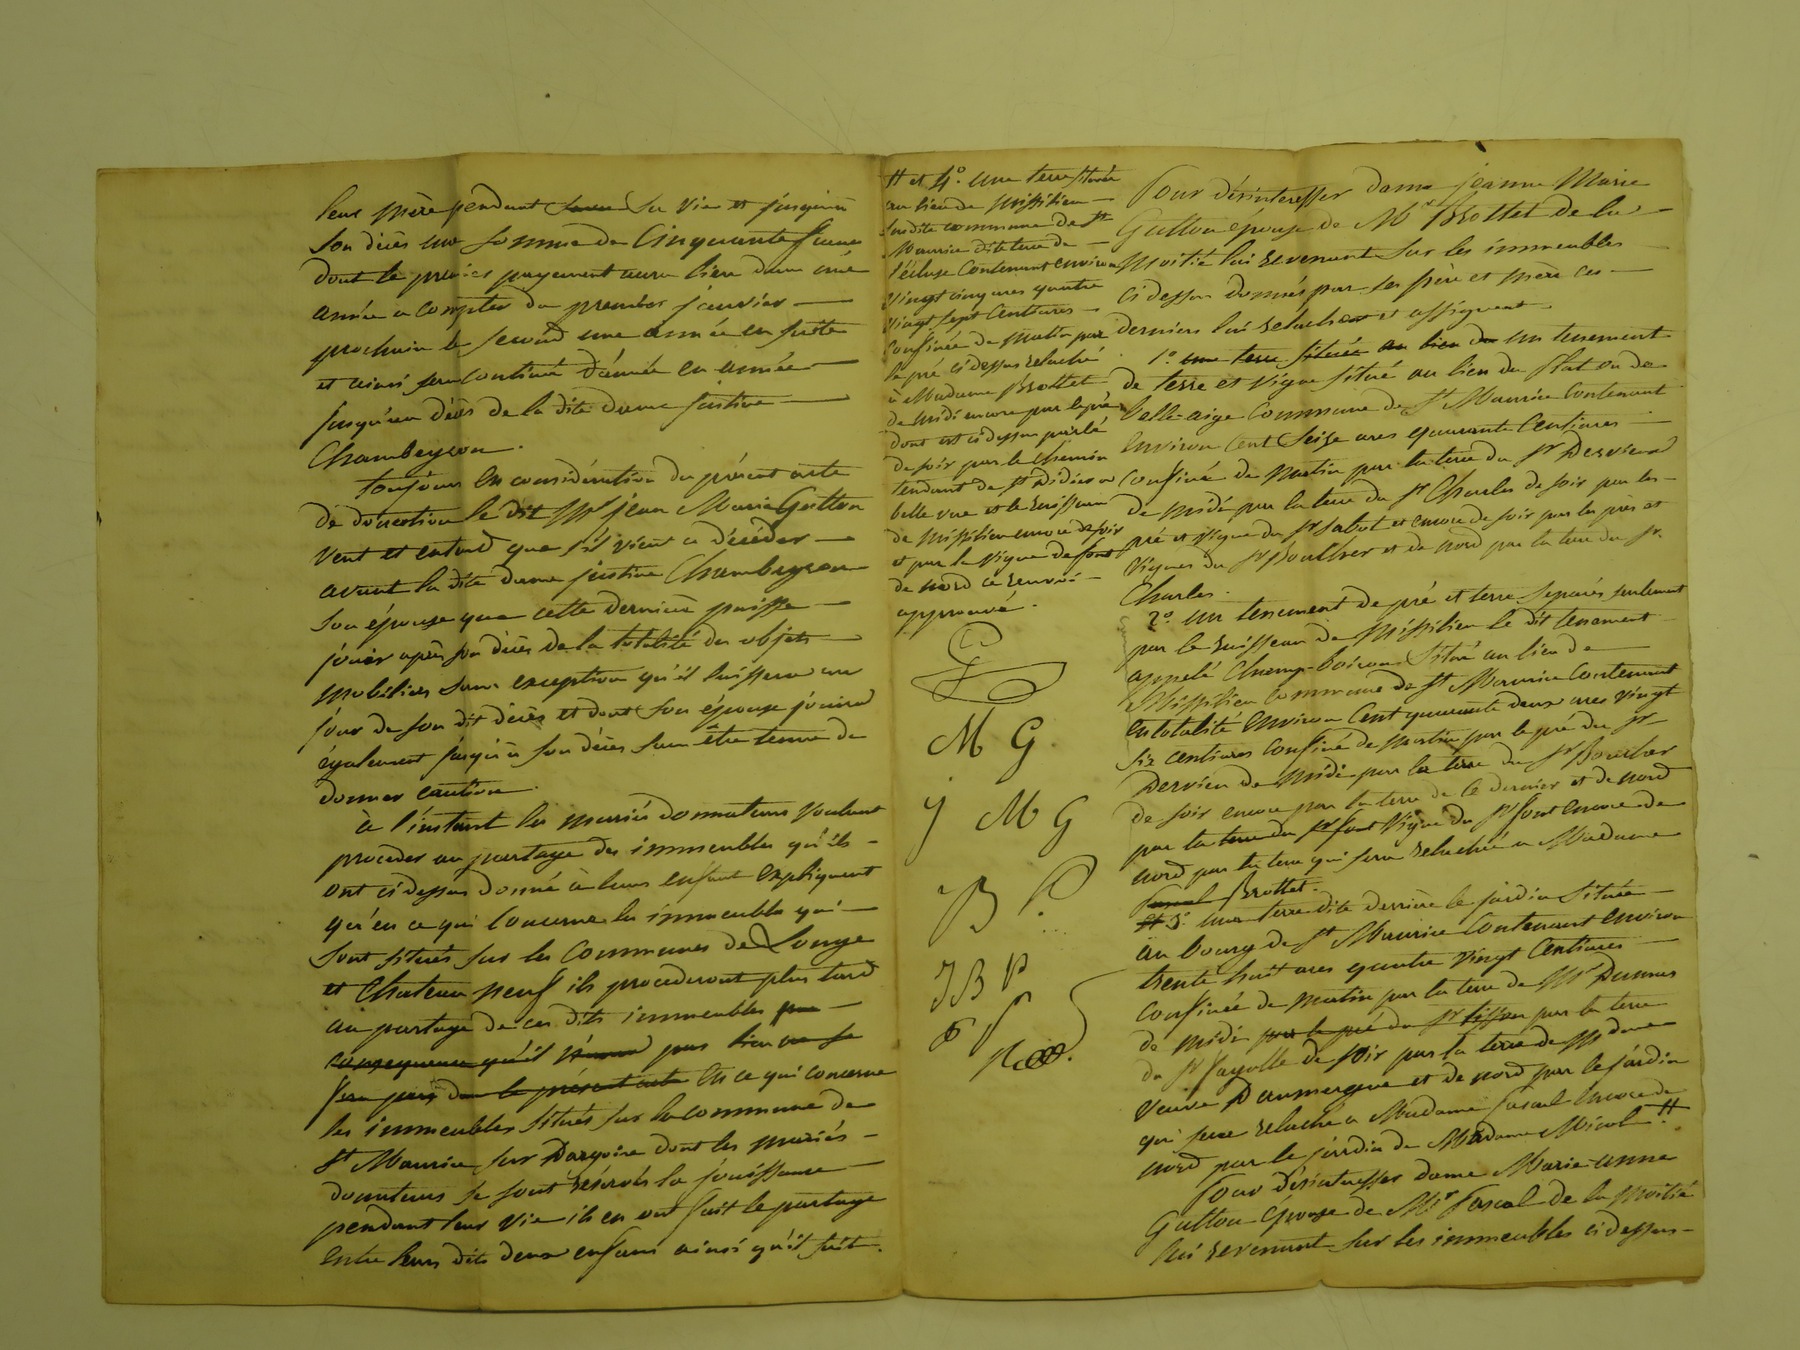 leur mère pendant sa vie et jusqu'à
son décès une somme de Cinquante francs
dont le premier payement aura lieu dans une
année a compter du premier janvier —
prochain le second une année en suite
et ainsi sera continué d'année en année —
jusqu'au décès de la dite dame justine —
Chambeyron.
toujours en considération du présent acte
de donation le dit Mr jean Marie Gutton
veut et entend que s'il vient a décéder —
avant la dite dame justine Chambeyron
son épouse que cette dernière puisse —
jouir après son décès de la totalité des objets
mobiliers sans exception qu'il laissera au
jour de son dit décès et dont son épouse jouira
également jusqu'à son décès sans être tenue de
donner caution.
à l'instant les mariés donnateurs voulant
proceder au partage des immeubles qu'ils -
ont ci dessus donné à leurs enfant expliquent
qu'en ce qui concerne les immeubles qui —
sont situés sur les communes de Longe
et Chateau neuf ils procederont plus tard
au partage de ces dits immeubles
en ce qui concerne
les immeubles situés sur la commune de
St Maurice sur Dargoire dont les mariés -
donnateurs se sont réservés la jouissance —
pendant leur vie ils en ont fait le partage
entre leurs dits deux enfans ainsi qu'il suit.
H et 4o. une terre située
au lieu de Missilieu —
susdite commune de St
Maurice dite terre de —
l'écluse contenant environ
vingt cinq ares quatre
vingt sept centiares —
confinée de matin par
le pré ci dessus relaché
à Madame Brottet
de midi encore par le pré
dont est ci dessus parlé
de soir par le chemin
tendant de St Didier a
belle vue et le ruisseau
de Missilieu encore de soir
et par la vigne de font
de nord ce renvoi —
approuvé.
M G.
J M G
B P.
J B P
Pour désinteresser dame jeanne Marie
Gutton épouse de Mr Brottet de la —
Moitié lui revenant sur les immeubles —
ci dessus donnés par ses père et mère ces —
derniers lui relachent et assignent.
1o une terre située au lieu de un tenement
de terre et vigne situé au lieu du Plat ou de
belle-aige commune de St Maurice contenant
environ cent seize ares quarante centiares —
confiné de matin par la terre du Sr Dervieux
de midi par la terre du Sr Charles de soir par les -
pré et vigne du Sr Sabot et encore de soir par les prés et
vignes du Sr Bouthier et de nord par la terre du Sr.
Charles.
2o un tenement de pré et terre separés seulement
par le ruisseau de Missilieu le dit tenement
appelé Champ-boiron situé au lieu de
Missilieu commune de St Maurice contenant
en totalité environ cent quarante deux ares vingt
six centiares confiné de matin par le pré du Sr
Dervieu de midi par la terre du Sr
de soir encore par la terre de ce dernier et de nord
par la terre du Sr font vigne du Sr font encore de
nord par la terre qui sera relachée a Madame
Pascal Brottet.
et 3o. une terre dite derrière le jardin située —
au bourg de St Maurice contenant environ
trente huit ares quatre vingt centiares —
confinée de matin par la terre de Mr Dumas
de midi par le pré du Sr tisseur par la terre
du Sr Fayolle de soir par la terre de Madame
veuve Daumergue et de nord par le jardin
qui sera relaché a Madame Pascal encore de
nord par le jardin de Madame Nicol. H
Pour désinteresser dame Marie-anne
Gutton épouse de Mr Pascal de la moitié
lui revenant sur les immeubles ci dessus —